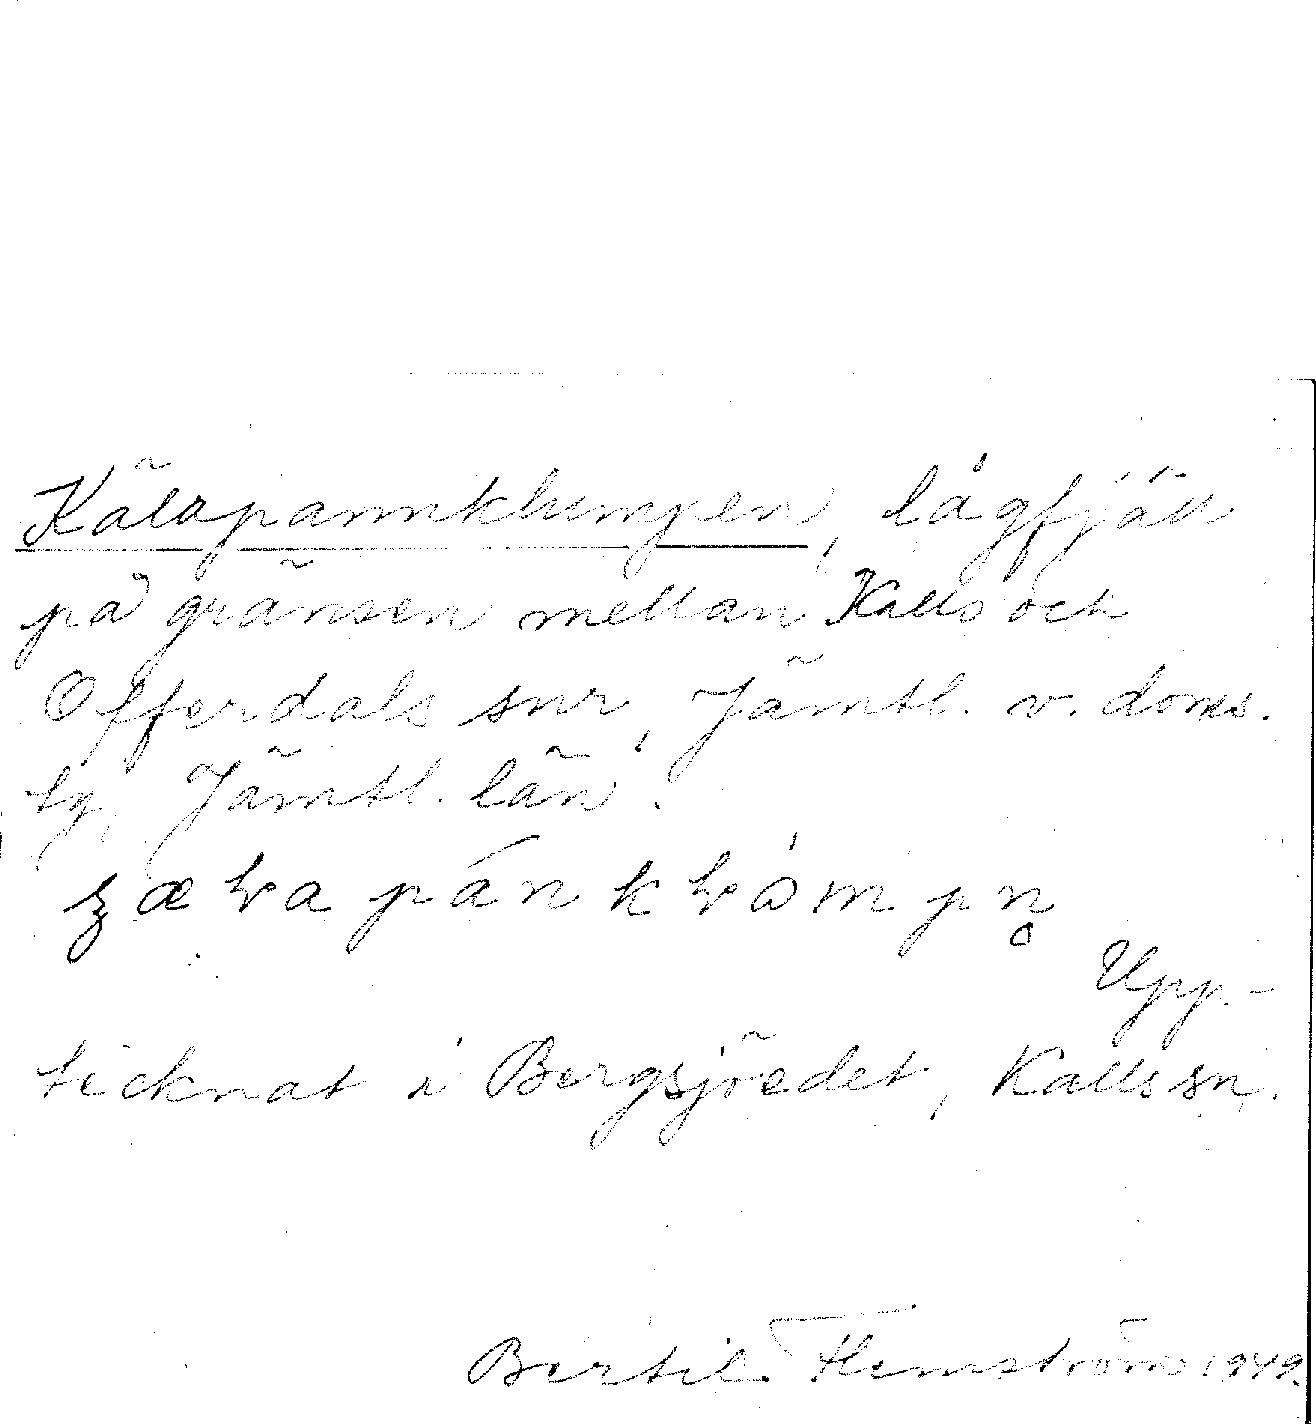 Kälapannklumpen, lågfjäll
på gränsen mellan Kalls och
Offerdals snr, Jämtl. v. doms.
tg, Jämtl. län.
Upp-
tecknat i Bergsjöedet, Kalls sn.
Bertil Flemström 1949.